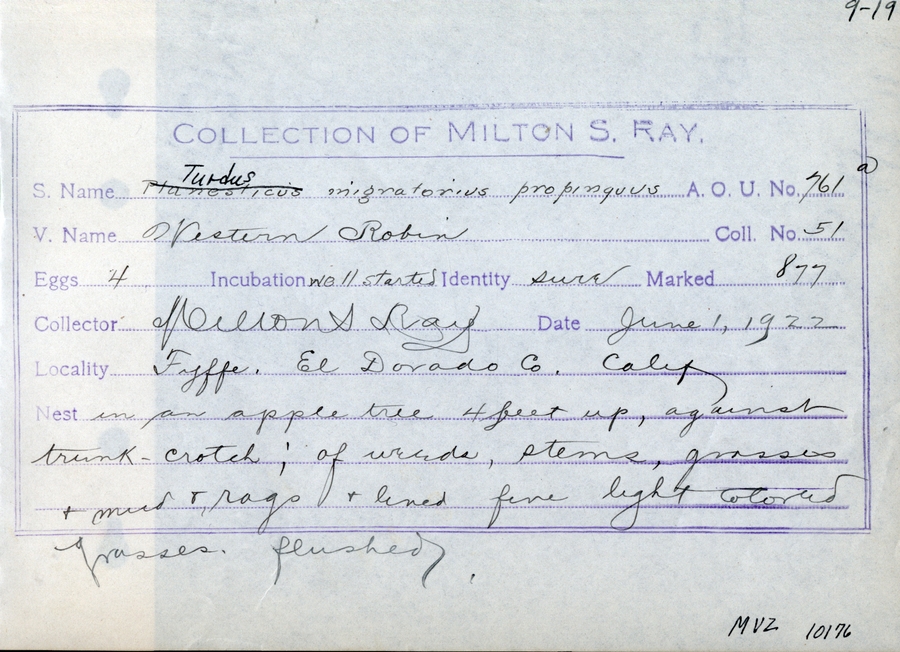 9-19
COLLECTION OF MILTON S. RAY.
Turdus
S. Name Planesticus migratorius propinquus A. O. U. No. 761 a
V. Name Western Robin Coll. No. 51
Eggs 4 Incubation well started Identity sure Marked 877
Collector Milton S Ray Date June 1, 1922
Locality Fyffe. El Dorado Co. Calif
Nest in an apple tree 4 feet up, against
trunk-crotch; of weeds, stems, grasses
+ mud +, rags + lined fine light colored
grasses. flushed.
MVZ 10176